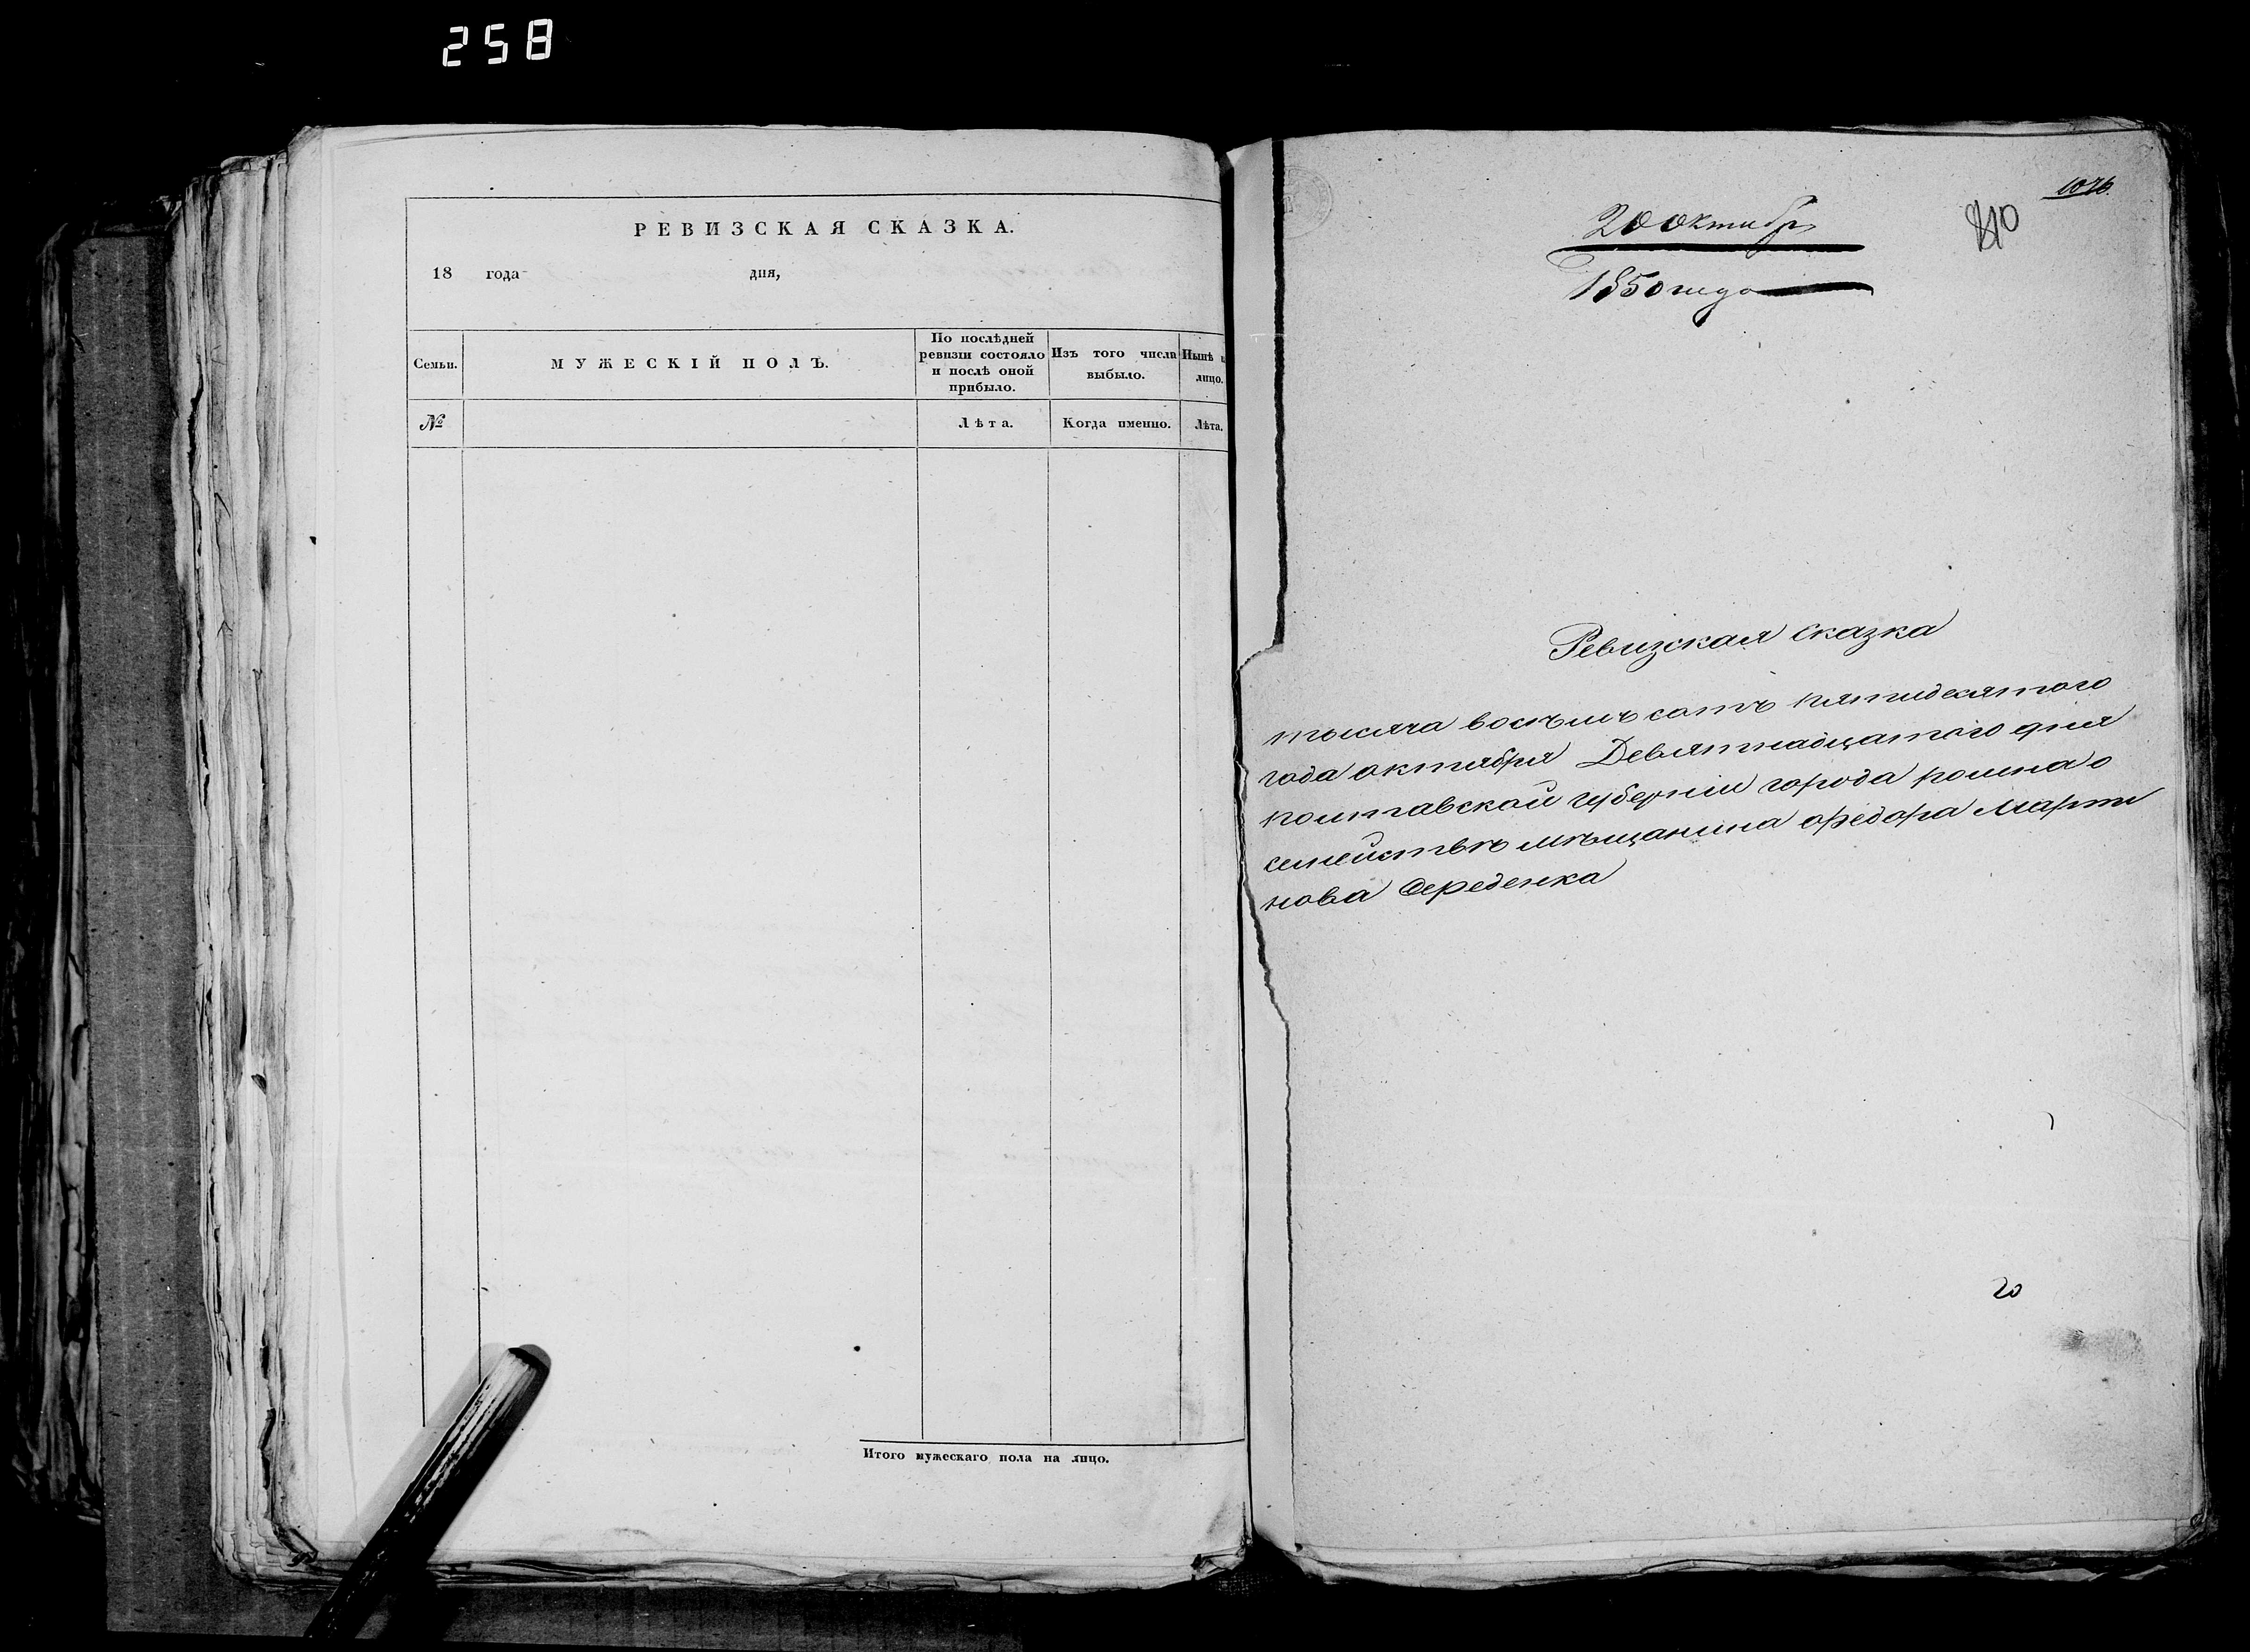 258
РЕВИЗСКАЯ СКАЗКА.
18 года дня,
Семьи.
МУЖЕСКІЙ ПОЛЪ.
По послѣдней
ревизіи состояло
и послѣ оной
прибыло.
Изъ того числа
выбыло.
Нынѣ
лицо.
№
Лѣта.
Когда именно.
Лѣта.
Итого мужескаго пола на лицо.
20 октября
1850 года
Ревизская сказка
тысяча восъмъ сотъ пятидесятого
года октября Девятнадцатого дня
полтавской губерніи города ромна о
семействѣ мѣщанина Федора Марти
нова Середенка
20